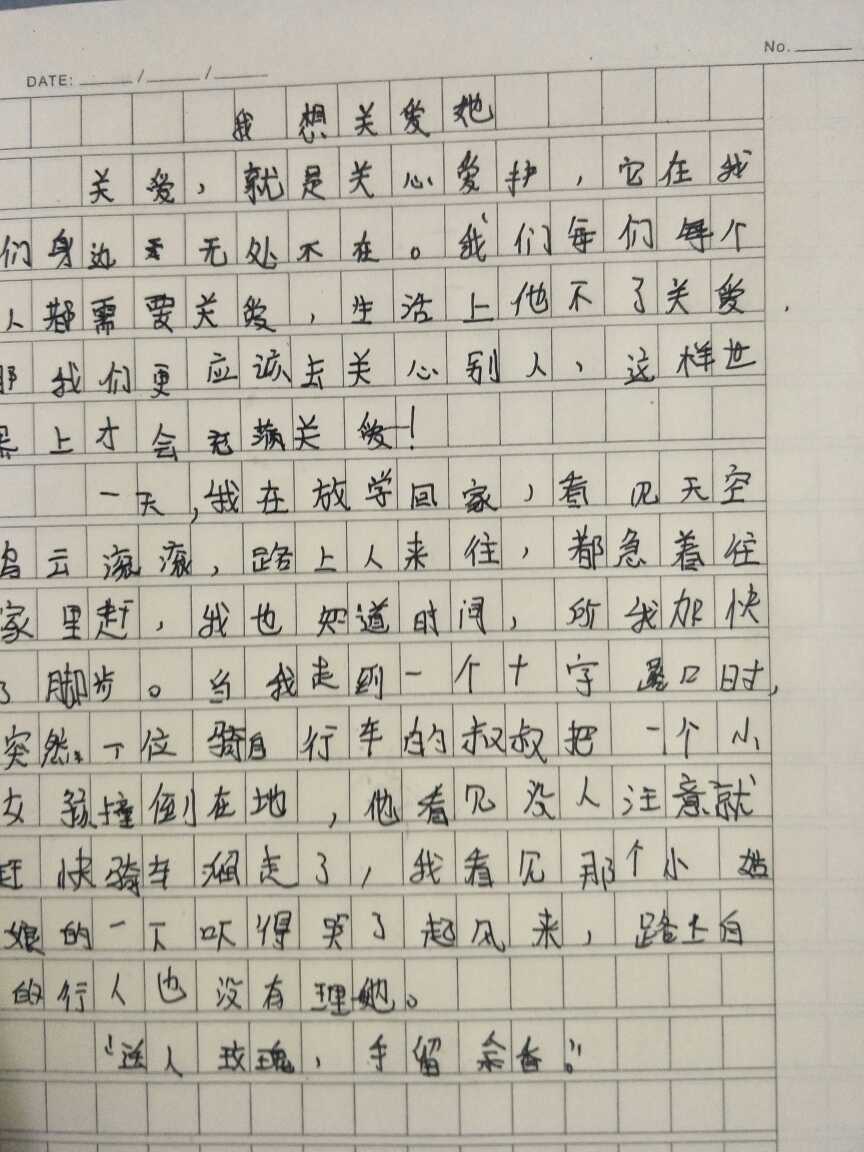 No.
DATE: / /
我想关爱她
关爱，就是关心爱护，它在我
们身边无处不在。我们每们每个
人都需要关爱，生活上他不了关爱
那我们更应该去关心别人，这样世
界上才会充满关爱！
一天，我在放学回家，看见天空
乌云滚滚，路上人来往，都急着住
家里赶，我也知道时间，所我加快
了脚步。当我走到一个十字路口时，
突然，一位骑自行车的叔叔把一个小
女孩撞倒在地，他看见没人注意就
赶快骑车溜走了，我看见那个小姑
娘的一下吓得哭了起风来，路上白
的行人也没有理她。
“送人玫瑰，手留余香。”